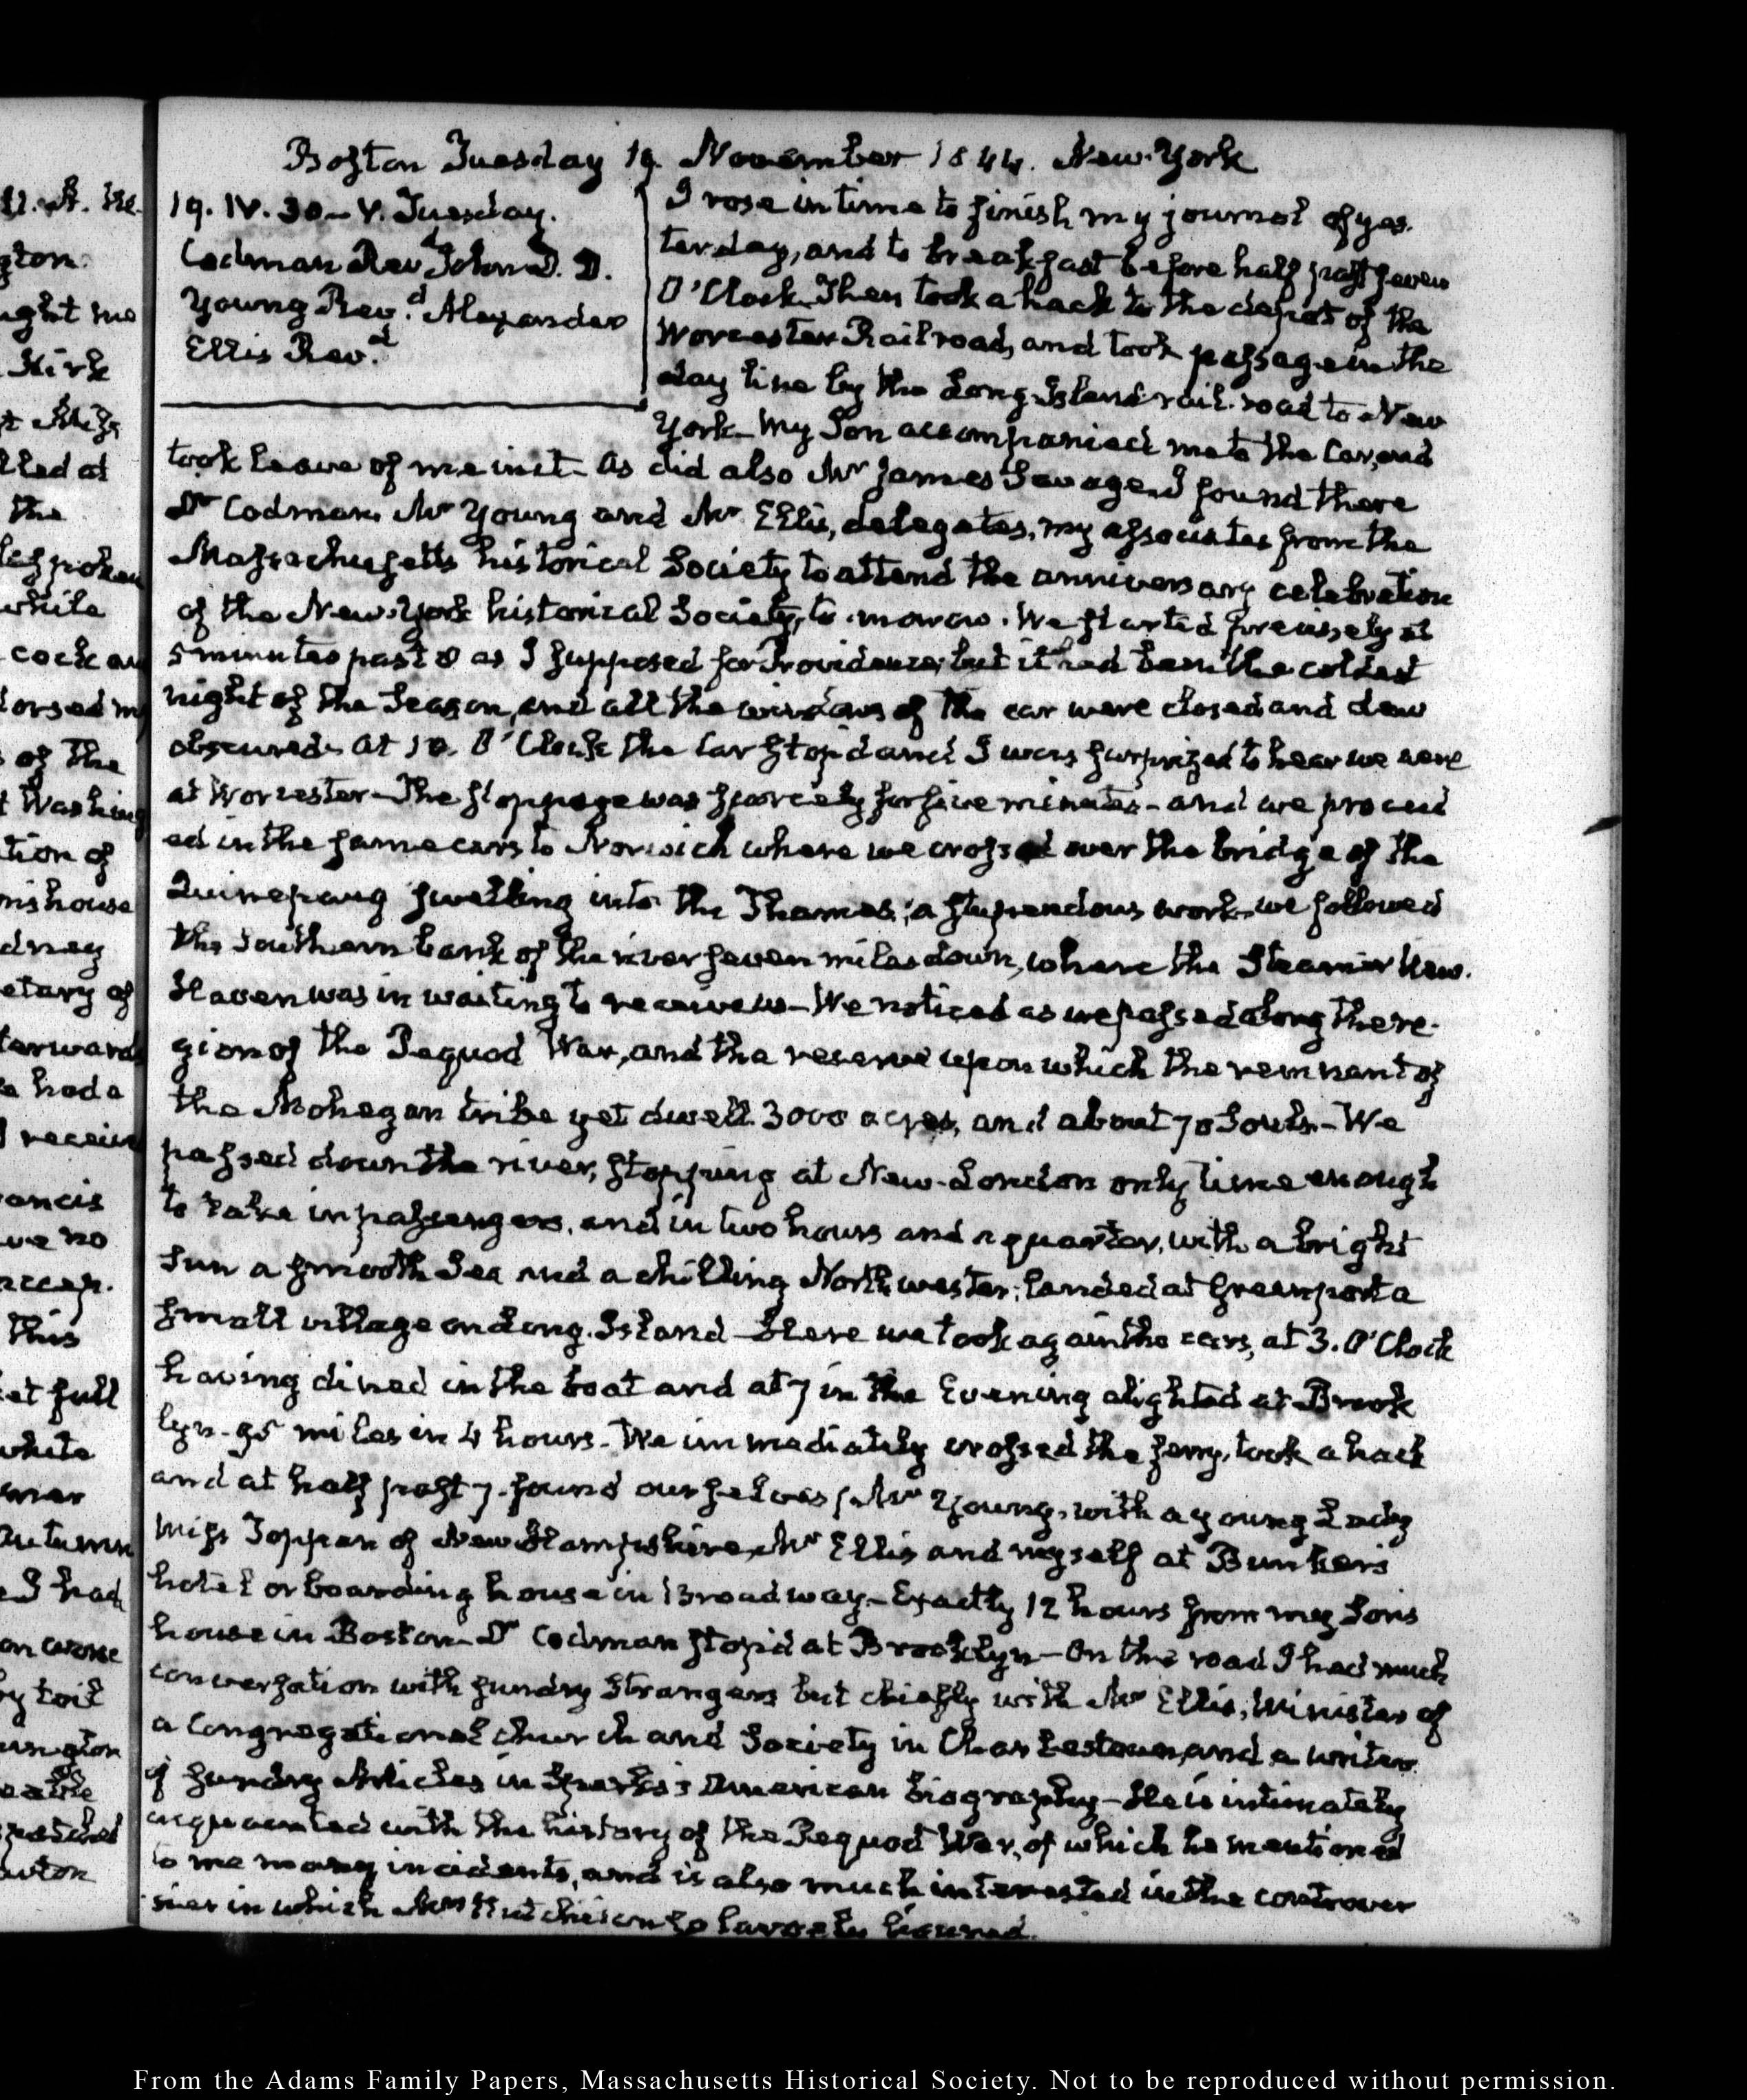 Boston Tuesday 19. November 1844. New-York
19. IV. 30 – V. Tuesday.
Codman Revd. John D. D.
Young Revd. Alexander
Ellis Revd.
I rose in time to finish my journal of yes-
terday, and to breakfast before half past seven
O'Clock. Then took a hack to the depot of the
Worcester Railroad, and took passage in the
day line by the Long-Island rail-road to New
York – My Son accompanied me to the Car, and
took leave of me in it – As did also Mr James Savage. I found there
Dr Codman, Mr Young and Mr Ellis, delegates, my associates from the
Massachusetts historical Society to attend the anniversary celebration
of the New-York historical Society, to-morrow. We started precisely at
5 minutes past 8 as I supposed for Providence; but it had been the coldest
night of the Season, and all the windows of the car were closed and dew
obscured – At 10. O'Clock the Car stop'd and I was surprized to hear we were
at Worcester – The stoppage was scarcely for five minutes – and we proceed
ed in the same cars to Norwich where we crossed over the bridge of the
Quinepaug swelling into the Thames; a stupendous work – we followed
the Southern bank of the river seven miles down, where the Steamer New-
Haven was in waiting to receive us – We noticed as we passed along the re-
gion of the Pequod War, and the reserve upon which the remnant of
the Mohegan tribe yet dwell. 3000 acres, and about 70 Souls – We
passed down the river, stopping at New-London only time enough
to take in passengers, and in two hours and a quarter, with a bright
Sun a smooth Sea and a chilling North wester; landed at Greenport a
small village on Long-Island – Here we took again the cars, at 3. O'Clock
having dined in the boat and at 7 in the Evening alighted at Brook
lyn – 95 miles in 4 hours – We immediately crossed the ferry, took a hack
and at half past 7. found ourselves, Mr Young, with a young Lady
Miss Toppan of New Hampshire, Mr Ellis and myself at Bunker's
hotel or boarding house in Broadway – Exactly 12 hours from my Son's
house in Boston – Dr Codman stop'd at Brooklyn – On the road I had much
conversation with sundry Strangers but chiefly with Mr Ellis, Minister of
a Congregational church and Society in Charlestown, and a writer
of sundry Articles in Sparks's American biography – He is intimately
acquainted with the history of the Pequod War, of which he mentioned
to me many incidents, and is also much interested in the controver
sies in which Mrs Hutchinson so largely figured.